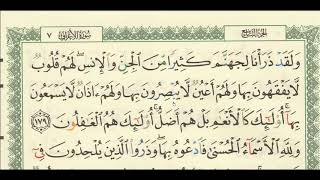 الجزء التاسع ٧ سورة الأعراف
وَلَقَدْ ذَرَأْنَا لِجَهَنَّمَ كَثِيرًا مِّنَ الْجِنِّ وَالْإِنسِ لَهُمْ قُلُوبٌ
لَّا يَفْقَهُونَ بِهَا وَلَهُمْ أَعْيُنٌ لَّا يُبْصِرُونَ بِهَا وَلَهُمْ ءَاذَانٌ لَّا يَسْمَعُونَ
بِهَا أُولَٰئِكَ كَالْأَنْعَٰمِ بَلْ هُمْ أَضَلُّ أُولَٰئِكَ هُمُ الْغَٰفِلُونَ ١٧٩
وَلِلَّهِ الْأَسْمَاءُ الْحُسْنَىٰ فَادْعُوهُ بِهَا وَذَرُوا الَّذِينَ يُلْحِدُونَ فِي